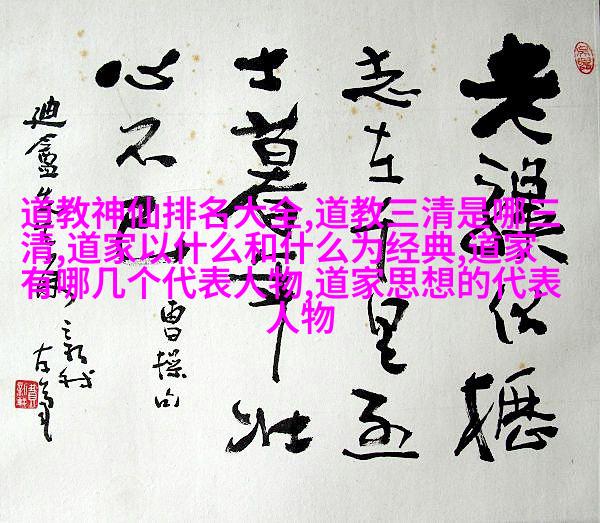 道教神仙排名大全,道教三清是哪三
清,道家以什么和什么为经典,道家
有哪几个代表人物,道家思想的代表
人物
老骥伏枥
志在千里烈
士暮年壮
心不已
曹操句